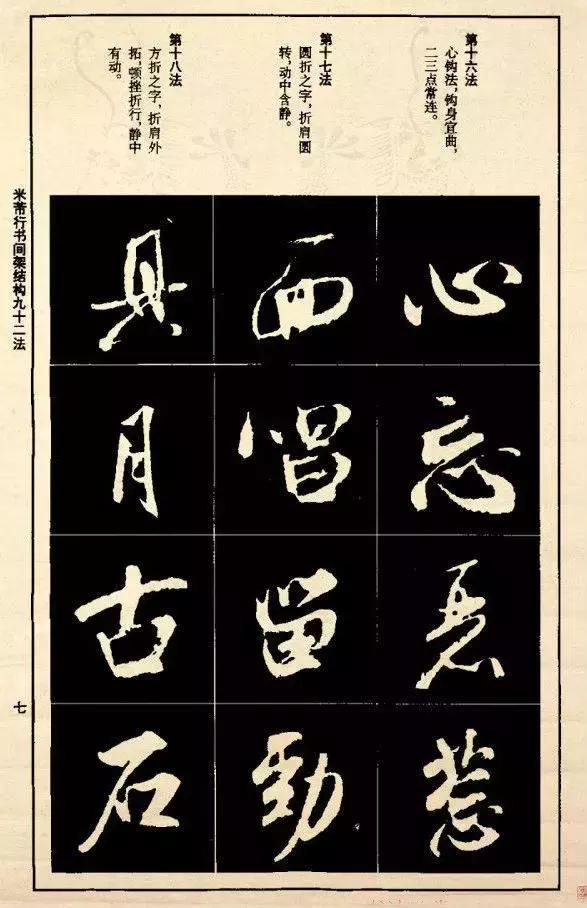 第十六法
心钩法,钩身宜曲,
二三点常连。
第十七法
圆折之字,折肩圆
转,动中含静。
第十八法
方折之字,折肩外
拓,顿挫折行,静中
有动。
心
忘
面
唱
留
劲
具
月
古
石
米芾行书间架结构九十二法
七